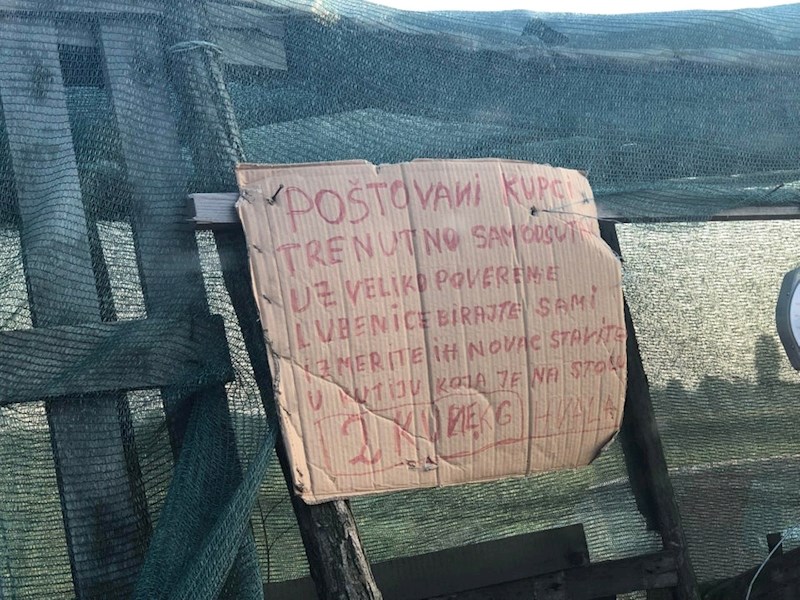 POŠTOVANI KUPCI
TRENUTNO SAM ODSUTAN
UZ VELIKO POVERENJE
LUBENICE BIRAJTE SAMI
IZMERITE IH NOVAC STAVITE
U KUTIJU KOJA JE NA STOLU
HVALA